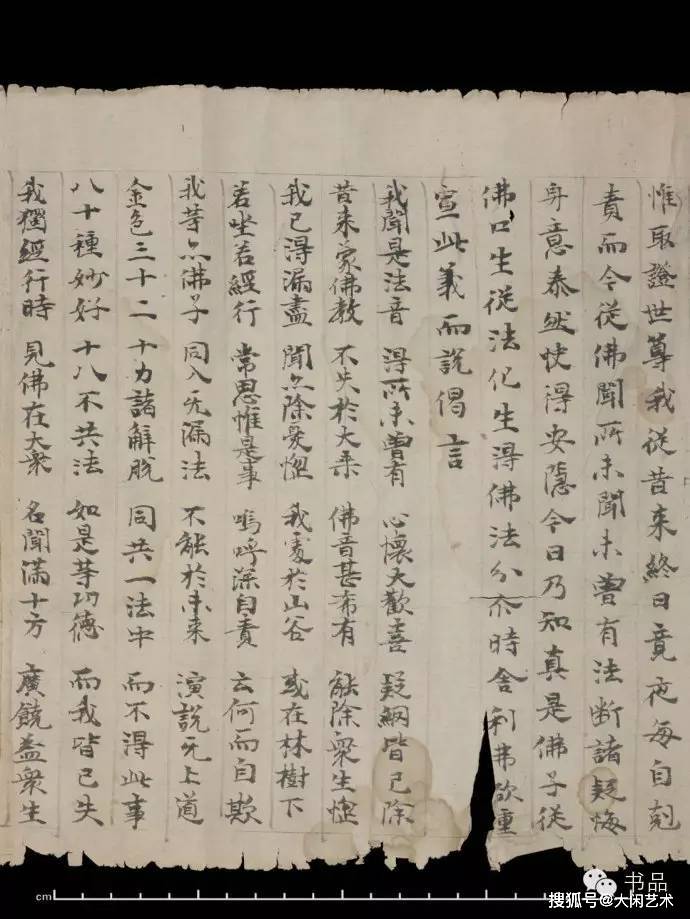 惟取證世尊我從昔来終日竟夜每自剋
責而今從佛聞所未聞未曽有法断諸疑悔
身意泰然快得安隱今日乃知真是佛子從
佛口生從法化生得佛法分尒時舎利弗欲重
宣此義而說偈言
我聞是法音 得所未曽有 心懐大歡喜 疑網皆已除
昔来蒙佛教 不失於大乗 佛音甚希有 能除衆生惱
我已得漏盡 聞亦除憂惱 我處於山谷 或在林樹下
若坐若經行 常思惟是事 嗚呼深自責 云何而自欺
我等亦佛子 同入无漏法 不能於未来 演說无上道
金色三十二 十力諸解脫 同共一法中 而不得此事
八十種妙好 十八不共法 如是等功德 而我皆已失
我獨經行時 見佛在大衆 名聞滿十方 廣饒益衆生
cm
书品
搜狐号@大闲艺术